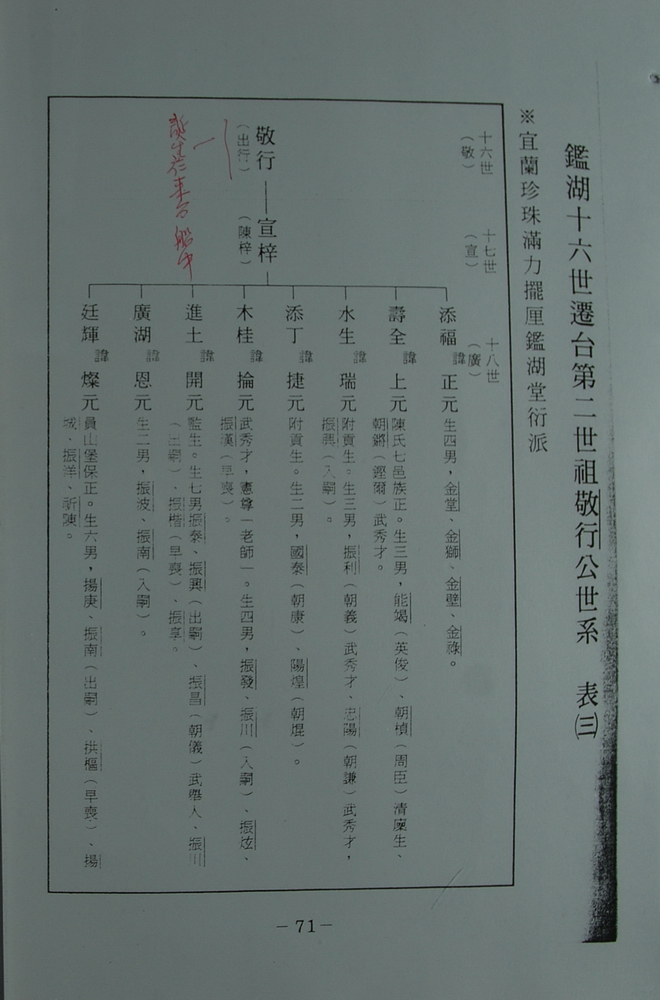 鑑湖十六世遷台第二世祖敬行公世系　表㈢
※宜蘭珍珠滿力擺厘鑑湖堂衍派
十六世（敬）
十七世（宣）
十八世（廣）
敬行——宣梓
（出行）　（陳梓）
添福　諱　正元　生四男，金堂、金獅、金壁、金祿。
壽全　諱　上元　陳氏七邑族正。生三男，能竭（英俊）、朝楨（周臣）清廩生、
朝鏘（鏗爾）武秀才。
水生　諱　瑞元　附貢生。生三男，振利（朝義）武秀才、忠陽（朝謙）武秀才，
振興（入嗣）。
添丁　諱　捷元　附貢生。生二男，國泰（朝康）、陽煌（朝焜）。
木桂　諱　掄元　武秀才，憲尊一老師一。生四男，振發、振川（入嗣）、振炫、
振漢（早喪）。
進士　諱　開元　監生。生七男振泰、振興（出嗣）、振昌（朝儀）武舉人、振川
（出嗣）、振楷（早喪）、振享。
廣湖　諱　恩元　生二男，振波、振南（入嗣）。
廷輝　諱　燦元　員山堡保正。生六男，揚庚、振南（出嗣）、拱樞（早喪）、揚
城、振洋、祈陳。
－71－